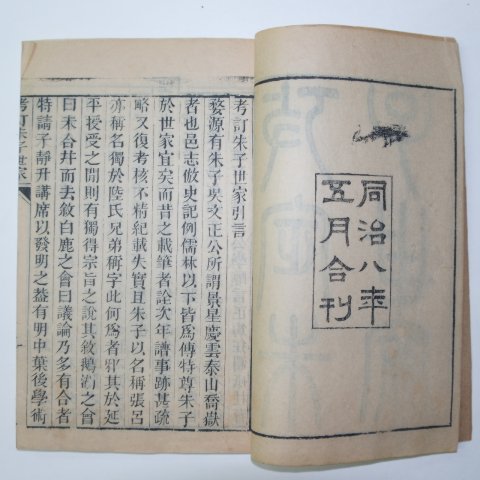 同治八年
五月合刊
考訂朱子世家引言
婺源有朱子吳文正公所謂景星慶雲泰山喬嶽
者也邑志倣史記例儒林以下皆爲傳特尊朱子
於世家宜矣而昔之載筆者詮次年譜事跡甚疏
略又復考核不精紀載失實且朱子以名稱張呂
亦稱名獨於陸氏兄弟稱字此何爲者邪其於延
平授受之閒則有獨得宗旨之說其敘鵝湖之會
曰未合幷而去敘白鹿之會曰議論乃多有合者
特請子靜升講席以發明之益有明中葉後學術
考訂朱子世家